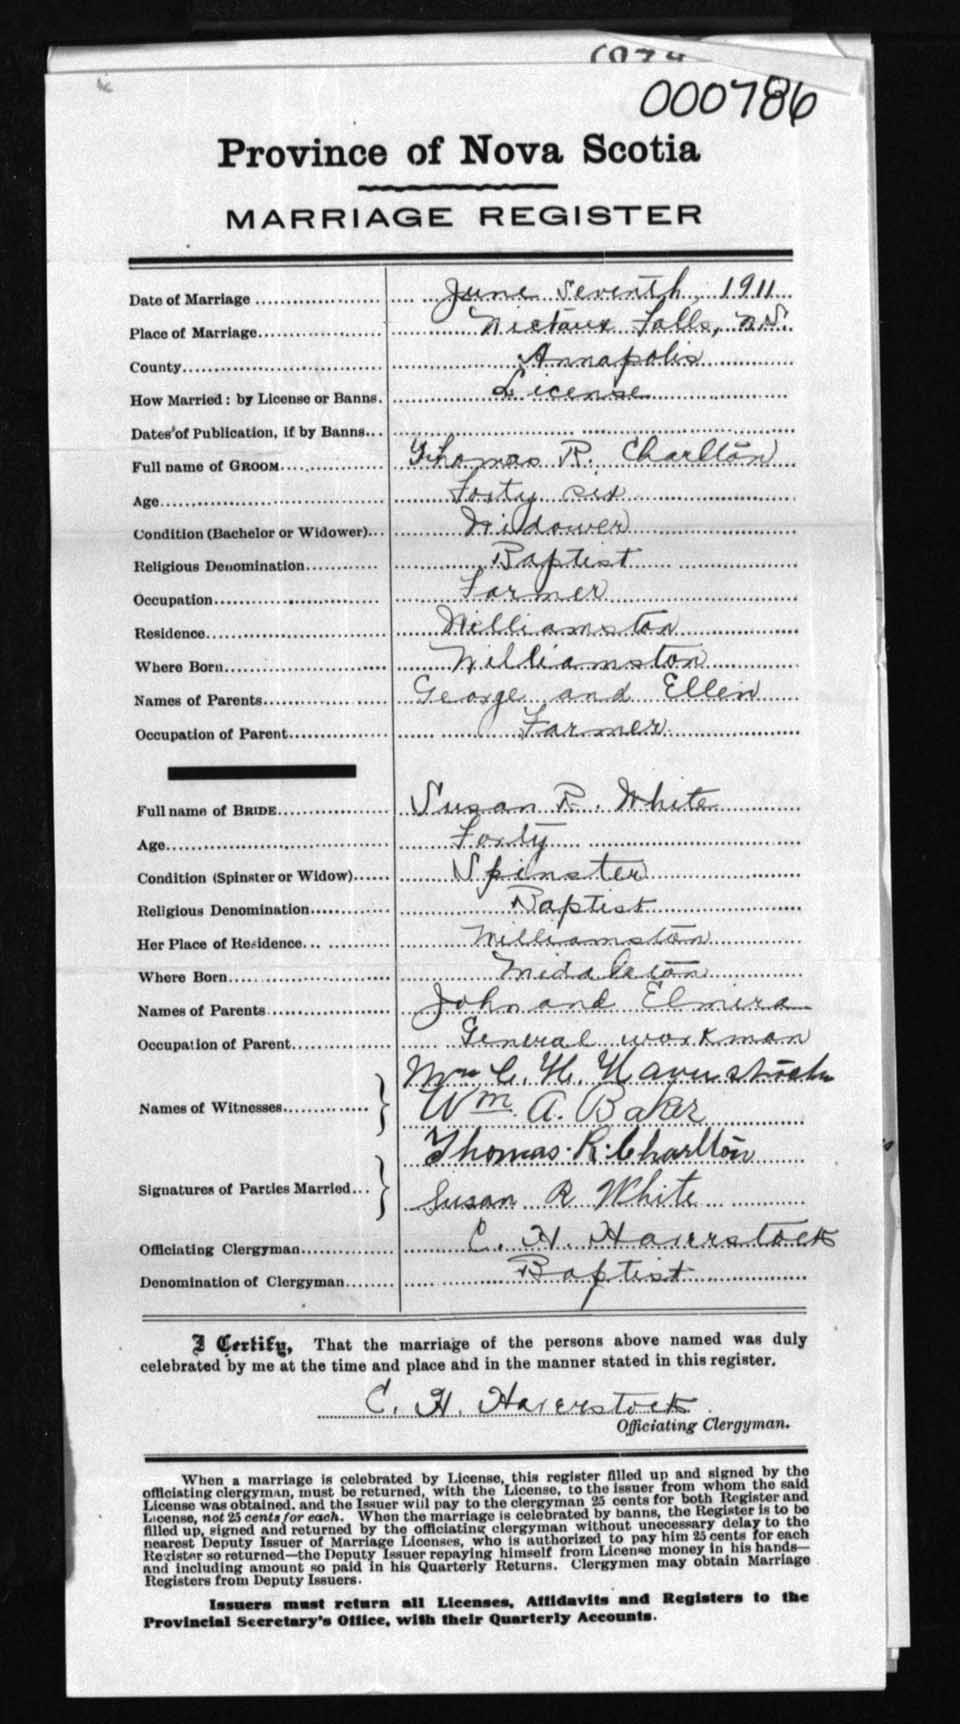 000786
Province of Nova Scotia
MARRIAGE REGISTER
Date of Marriage ..... June Seventh 1911
Place of Marriage..... Nictaux Falls, N.S.
County..... Annapolis
How Married: by License or Banns. License
Dates of Publication, if by Banns...
Full name of GROOM..... Thomas R. Charlton
Age..... Forty six
Condition (Bachelor or Widower)... Widower
Religious Denomination..... Baptist
Occupation..... Farmer
Residence..... Williamston
Where Born..... Williamston
Names of Parents..... George and Ellen
Occupation of Parent..... Farmer
Full name of BRIDE..... Susan R. White
Age..... Forty
Condition (Spinster or Widow)..... Spinster
Religious Denomination..... Baptist
Her Place of Residence..... Williamston
Where Born..... Middleton
Names of Parents..... John and Elmira
Occupation of Parent..... General workman
Mrs C. H. Haverstock
Names of Witnesses..... Wm. A. Baker
Thomas R. Charlton
Signatures of Parties Married... Susan R White
Officiating Clergyman..... C. H. Haverstock
Denomination of Clergyman..... Baptist
I Certify, That the marriage of the persons above named was duly
celebrated by me at the time and place and in the manner stated in this register.
C. H. Haverstock
Officiating Clergyman.
When a marriage is celebrated by License, this register filled up and signed by the
officiating clergyman, must be returned, with the License, to the issuer from whom the said
License was obtained, and the Issuer will pay to the clergyman 25 cents for both Register and
License, not 25 cents for each. When the marriage is celebrated by banns, the Register is to be
filled up, signed and returned by the officiating clergyman without unecessary delay to the
nearest Deputy Issuer of Marriage Licenses, who is authorized to pay him 25 cents for each
Register so returned—the Deputy Issuer repaying himself from License money in his hands—
and including amount so paid in his Quarterly Returns. Clergymen may obtain Marriage
Registers from Deputy Issuers.
Issuers must return all Licenses, Affidavits and Registers to the
Provincial Secretary's Office, with their Quarterly Accounts.